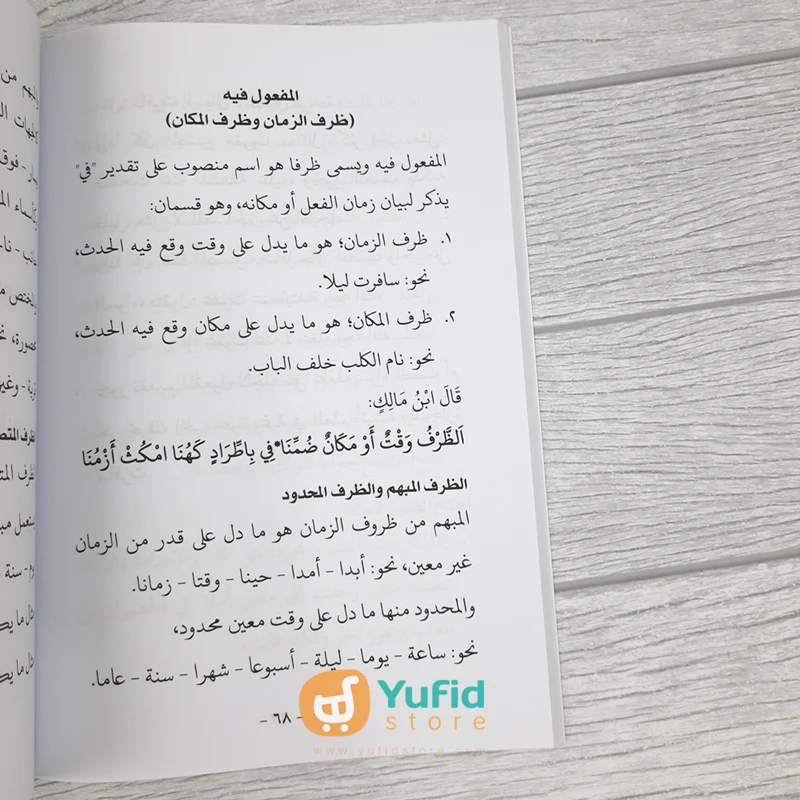 المفعول فيه
(ظرف الزمان وظرف المكان)
المفعول فيه ويسمى ظرفا هو اسم منصوب على تقدير "في"
يذكر لبيان زمان الفعل أو مكانه، وهو قسمان:
١. ظرف الزمان؛ هو ما يدل على وقت وقع فيه الحدث،
نحو: سافرت ليلا.
٢. ظرف المكان؛ هو ما يدل على مكان وقع فيه الحدث،
نحو: نام الكلب خلف الباب.
قَالَ ابْنُ مَالِكٍ:
اَلظَّرْفُ وَقْتٌ أَوْ مَكَانٌ ضُمِّنَا*فِي بِاطِّرَادٍ كَهُنَا امْكُثْ أَزْمُنَا
الظرف المبهم والظرف المحدود
المبهم من ظروف الزمان هو ما دل على قدر من الزمان
غير معين، نحو: أبدا - أمدا - حينا - وقتا - زمانا.
والمحدود منها ما دل على وقت معين محدود،
نحو: ساعة - يوما - ليلة - أسبوعا - شهرا - سنة - عاما.
- ٦٨ -
Yufid
store
www.yufidstore.com